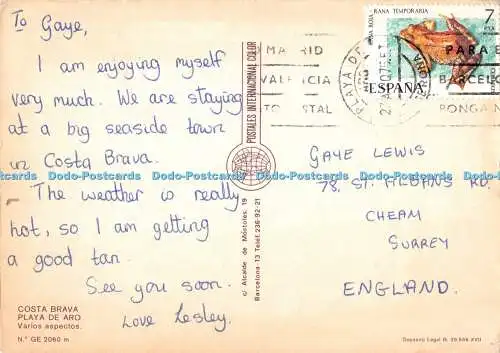 To Gaye,
I am enjoying myself
very much. We are staying
at a big seaside town
in Costa Brava.
The weather is really
hot, so I am getting
a good tan.
See you soon.
Love Lesley.
COSTA BRAVA
PLAYA DE ARO
Varios aspectos.
N.º GE 2060 m
POSTALES INTERNACIONAL COLOR
c/ Alcalde de Móstoles, 19
Barcelona-13 Teléf. 236-92-21
RANA ROJA - RANA TEMPORARIA
7
PTA
ESPAÑA
MADRID
VALENCIA
PARA
BARCELO
PONGA
PLAYA DE
GAYE LEWIS
78, ST. ALBANS RD,
CHEAM
SURREY
ENGLAND.
Dodo-Postcards Dodo-Postcards Dodo-Postcards Dodo-Postcards Dodo-Postcards